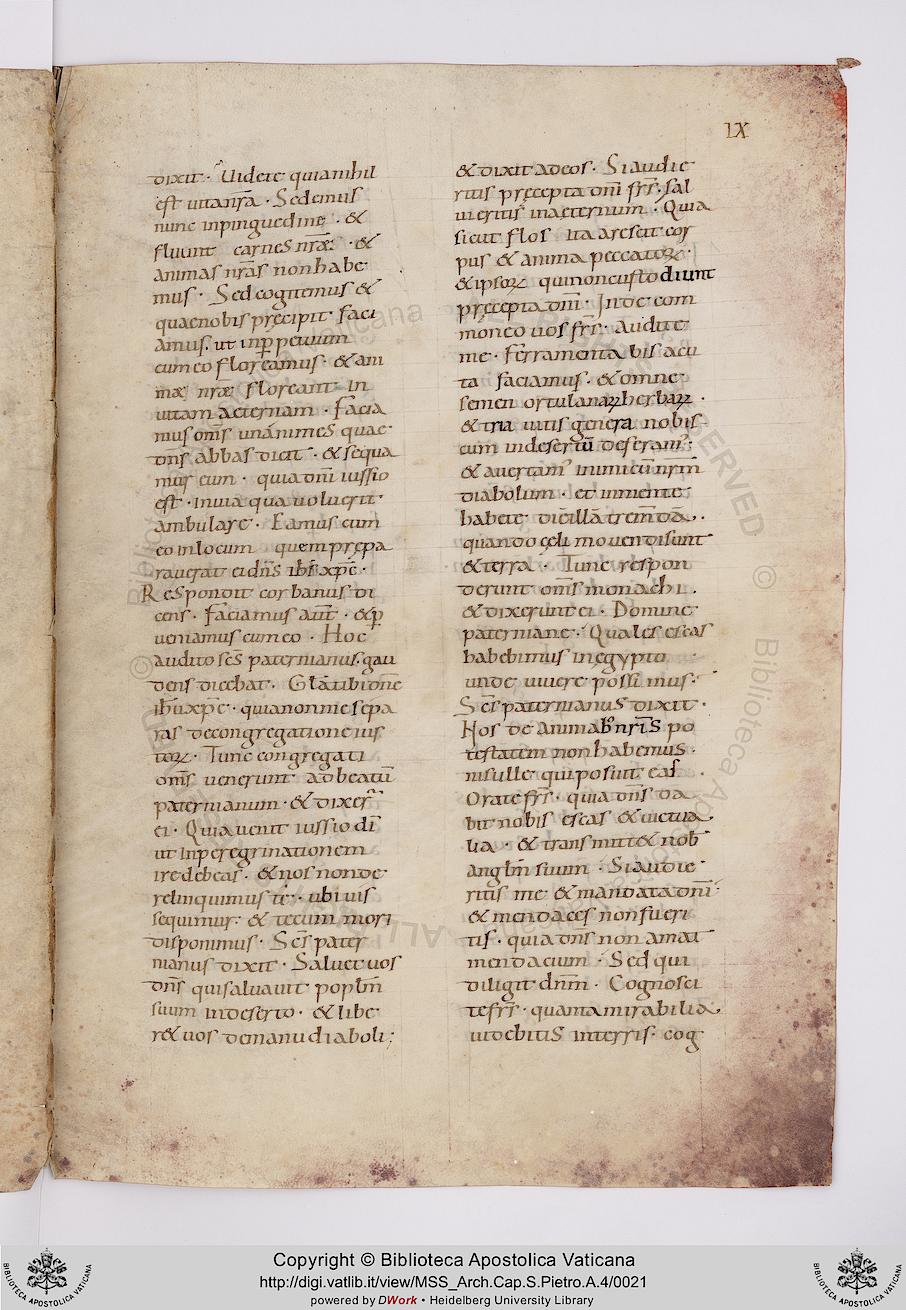 LX
dixit · Uidete quia nihil
est uita nr̄a · Sedemus
nunc inpinguedine · &
fluunt carnes nr̄æ · &
animas nr̄as non habe
mus · Sed cogitemus &
quae nobis pręcipit faci
amus. ut inp̱petuum
cum eo floreamus · & ani
mæ nr̄æ floreant in
uitam aeternam · Facia
mus om̄s unánimes quae
dn̄s abbas dicit · & sequa
mur eum · quia dn̄i iussio
est · In uia qua uoluerit
ambulare · Eamus cum
eo in locum quem prępa
rauerat ei dn̄s ih̄s xp̄s ·
Respondit corbanus di
cens · Faciamus aut̄ · & p̱
ueniamus cum eo · Hoc
audito sc̄s paternianus. gau
dens dicebat · Glā tibi dn̄e
ih̄u xp̄e · quia non me sepa
ras de congregatione uis
toꝝ · Tunc congregati
om̄s uenerunt ad beatū
paternianum · & dixer̄
ei · Quia uenit iussio dī
ut in peregrinationem
ire debeas · & nos non de
relinquimus te · ubi uis
sequimur · & tecum mori
disponimus · Sc̄s pater
nianus dixit · Saluet uos
dn̄s qui saluauit popłm
suum in deserto · & libe
r& uos de manu diaboli ;
& dixit ad eos · Si audie
ritis pręcepta dn̄i fr̄s · sal
ui eritis in aeternum · Quia
sicut flos ita arescit cor
pus & anima peccatoꝝ ·
& ipsoꝝ qui non custodiunt
pręcepta dn̄i · Inde com
moneo uos fr̄s · Audite
me · Ferramenta bis acu
ta faciamus · & omne
semen ortulanaꝝ herbaꝝ ·
& tria uitis genera nobis
cum in desertū deferam' ·
& auertam' inimicū nr̄m
diabolum · et in mente
habete diē illā tremdā ·
quando cęli mouendi sunt
& terra · Tunc respon
derunt om̄s monachi ·
& dixerunt ei · Domine
paterniane · Quales escas
habebimus in egypto
unde uiuere possimus ·
Sc̄s paternianus dixit ·
Hos de animab' nr̄is po
testatem non habemus ·
nisi ille qui posuit eas ·
Orate fr̄s · quia dn̄s da
bit nobis escas & uictua
lia · & transmitt& nob̄
angłm suum · Si audie
ritis me & mandata dn̄i ·
& mendaces non fueri
tis · quia dn̄s non amat
mendacium · Sed qui
diligit dn̄m · Cognosci
te fr̄s · quanta mirabilia
uidebitis in terris · cog
Copyright © Biblioteca Apostolica Vaticana
http://digi.vatlib.it/view/MSS_Arch.Cap.S.Pietro.A.4/0021
powered by DWork • Heidelberg University Library